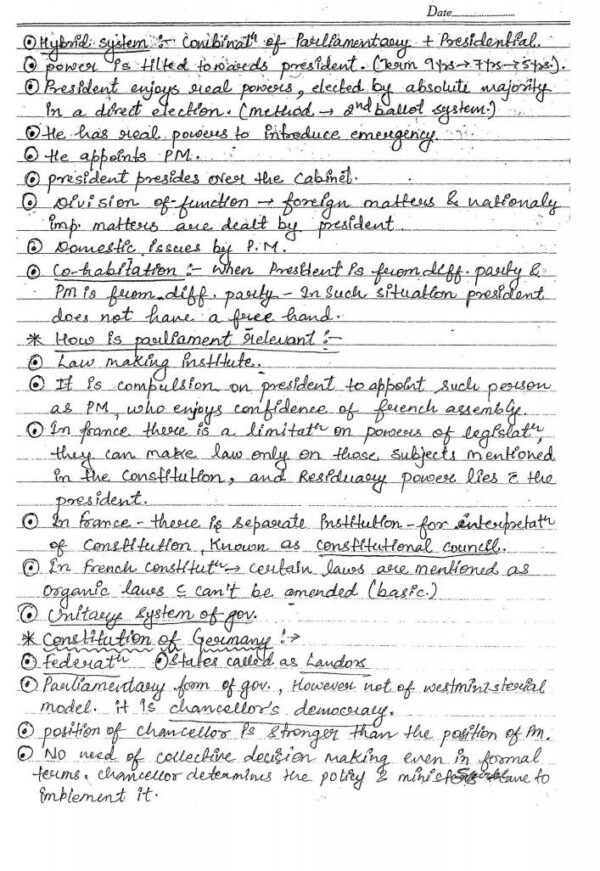 Date..................
⊙ Hybrid system :- Combinatⁿ of Parliamentary + Presidential.
⊙ power is tilted towards president. (Term 9yrs→7yrs→5yrs.).
⊙ President enjoys real powers, elected by absolute majority
in a direct election. (method → 2nd ballot system.)
⊙ He has real powers to introduce emergency.
⊙ He appoints PM.
⊙ president presides over the Cabinet.
⊙ Division of function → foreign matters & nationaly
imp. matters are dealt by president.
⊙ Domestic issues by P.M.
⊙ Co-habitation :- when President is from diff. party &
PM is from diff. party - In such situation president
does not have a free hand.
* How is parliament relevant :-
⊙ Law making institute.
⊙ It is compulsion on president to appoint such person
as PM, who enjoys confidence of french assembly.
⊙ In france there is a limitatⁿ on powers of legislatⁿ,
they can make law only on those subjects mentioned
in the Constitution, and Residuary power lies c̄ the
president.
⊙ In france - there is separate institution - for interpretatⁿ
of Constitution, known as constitutional council.
⊙ In French constitutⁿ → certain laws are mentioned as
organic laws c̄ can't be amended (basic.)
⊙ Unitary System of gov.
* Constitution of Germany :→
⊙ federatⁿ ⊙ States called as Landors
⊙ Parliamentary form of gov., However not of westministerial
model. it is chancellor's democracy.
⊙ position of chancellor is stronger than the position of PM.
⊙ No need of collective decision making even in formal
terms. chancellor determines the policy & ministers have to
implement it.